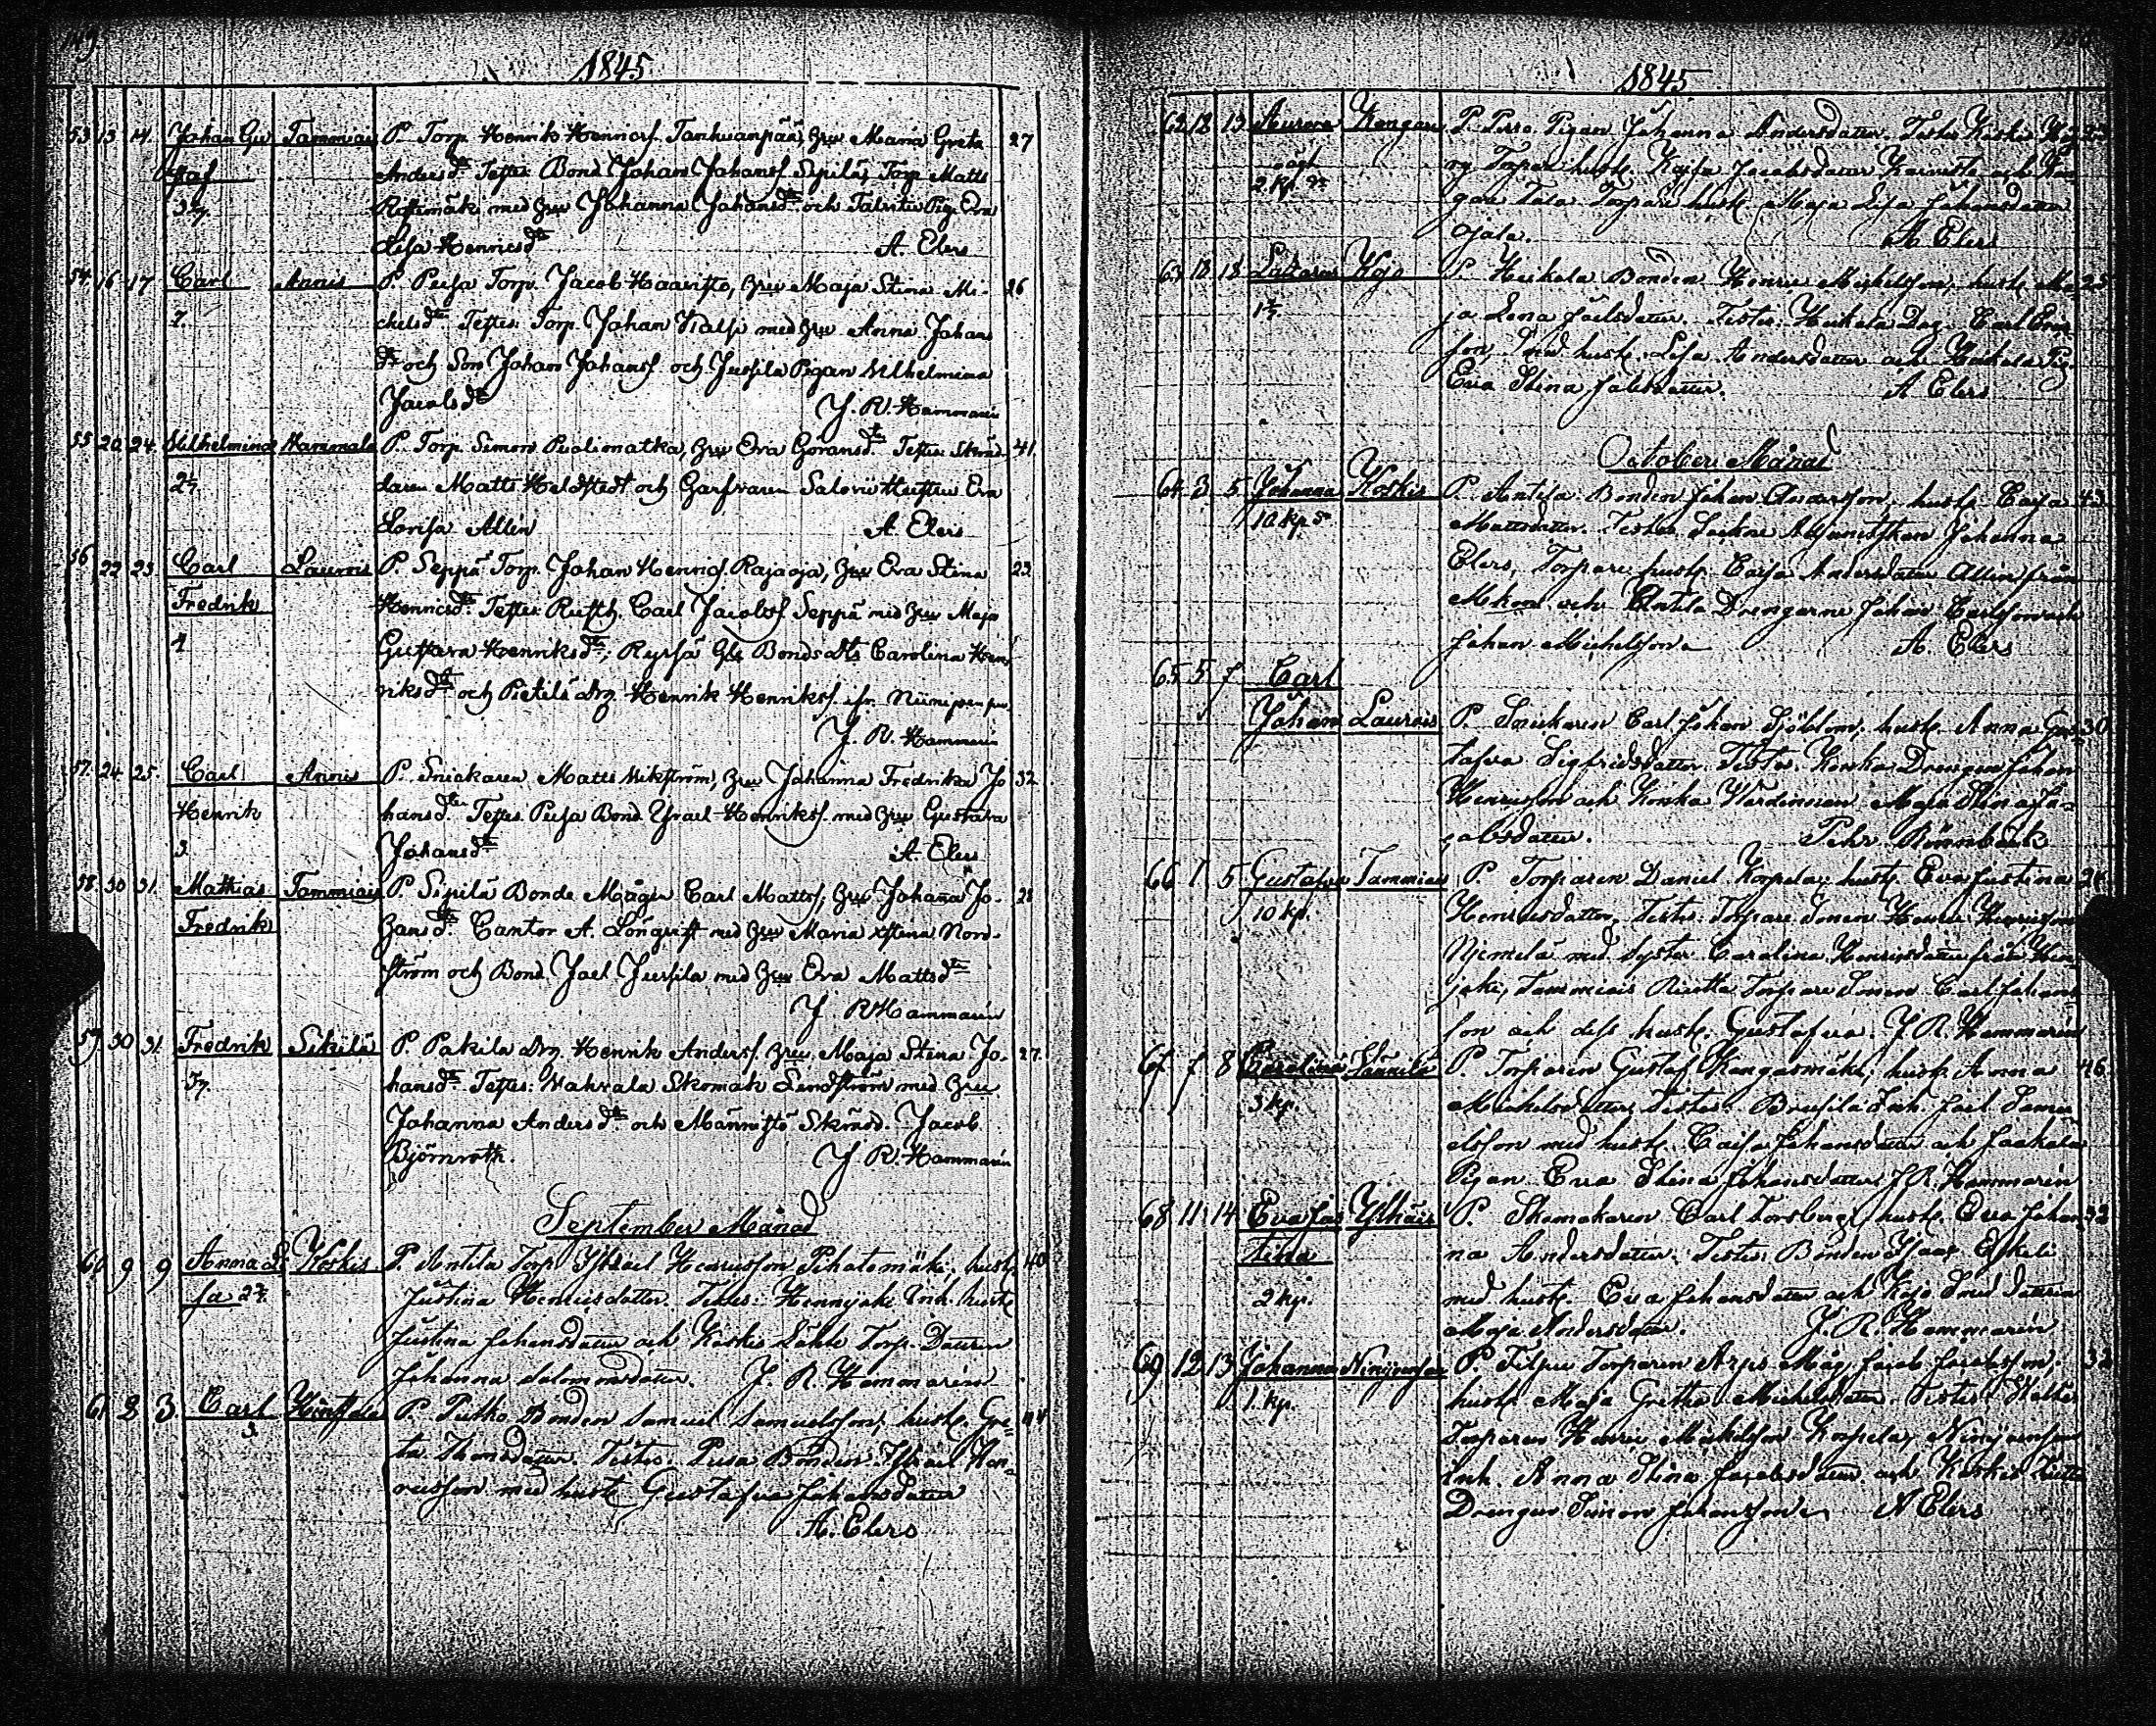 149
1845
53 13 14 Johan Gu Tammiais P. Torp. Henrik Henricss. Tanhuanpää, hru Maria Greta 27
staf Andersdr Testes: Bond. Johan Johanss. Sipilä, Torp. Matts
3/7. med hru Johanna Johansdr och Talvitie Pig. Eva
Lisa Henricsdr A. Elers
54 16 17 Carl Annis P. Peisa Torp. Jacob Haavisto, hru Maja Stina Mi- 26
7. chelsdr Testes: Torp. Johan Kalsi med hru Anna Johans
dr och Son Johan Johanss. och Jussila Pigan Wilhelmina
Jacobsdr J. R. Hammarin
55 20 24 Wilhelmina Hammala P. Torp. Simon hru Eva Göransdr Testes: Skräd- 41.
2/7. daren Matts Heldstedt och Garfvaren Hustru Eva
Lovisa Allén A. Elers
56 22 23 Carl Laurois P. Seppä Torp. Johan Henrics. Rajaoja, hru Eva Stina 23.
Fredrik Henricsdr Testes: Rusth. Carl Jacobss. Seppä med hru Maja
4 Gustava Henriksdr, Bonds Carolina Hen
riksdr och Pietilä Drg. Henrik Henrikss. ifr.
J. R. Hammarin
57. 24 25. Carl Annis P. Snickaren Matts Wikström, hru Johanna Fredrika Jo 32
Henrik hansdr Testes: Peisa Bond. Israel Henrikss. med hru Gustava
3 Johansdr A. Elers
58. 30 31. Mathias Tammiais P. Sipilä Bonde Mågen Carl Mattss, hru Johanna Jo- 28
Fredrik hansdr Cantor A. Lönqvist med hru Maria Stina Nord-
ström och Bond. Joel Jussila med hru Eva Mattsdr
J. R. Hammarin
59. 30 31. Fredrik Sikilä P. Pakila Drg. Henrik Anderss. hru Maja Stina Jo- 27.
5/7. hansdr Testes: Skomak. Lindström med hru
Johanna Andersdr och Männistö Skrädd. Jacob
Björnroth. J. R. Hammarin
September Månad
60 9 9 Anna Li Koskis P. Antila Torp. Israel Henricsson hust. 40
sa 2/7. Justina Henricsdotter. Testes: Hennijoki Inh. hust.
Justina Johansdotter och Koskis Torp. Dottren
Johanna Salomonsdotter. J. R. Hammarin
61 2 3. Carl P. Bonden Samuel Samuelsson, hust. Gre- 44
3. ta Thomsdotter. Testes: Peisa Bonden Israel Hen-
ricsson med hust. Gustafva Johansdotter
A. Elers
1845
62 12 13 Aurora Kongari P. Pigan Johanna Andersdotter. Testes: Koskis
oäkt Torpar hust. Kajsa Jacobsdotter och Kon-
2 Kp. gari Torpare hust. Maja Lisa Johansdotter
Ojala. A. Elers
63 18 18 Lazarus Kojo P. Heikola Bonden Henric Michelsson, hust. Ma- 25
1/7. ja Lena Joelsdotter. Testes: Heikola Drg. Carl Erics
son med hust. Lisa Andersdotter och Heikola Pig.
Eva Stina Joelsdotter. A. Elers
October Månad
64 3 5 Johanna Koskis P. Antila Bonden Johan Andersson, hust. Caisa 43
10 kp. Mattsdotter. Testes: Sockne Adjunctskan Johanna
Elers, Torpare hust. Caisa Andersdotter Allin från
och Antila Drengarne Johan Carlsson och
Johan Michelsson A. Elers
65 5 7 Carl
Johan Laurois P. Snickaren Carl Johan Sjöblom, hust. Anna Gus- 30
tafva Sigfridsdotter. Testes: Konka Drengen Johan
Henricsson och Konka Wärdinnan Maja Stina Ja-
cobsdotter. Pehr Rönnbäck
66 1 5 Gustafva Tammiais P. Torparen Daniel Korpela, hust. Eva Justina
10 kp. Henricsdotter. Testes: Torpare Sonen Henric Henricsson
Njemelä med Syster Carolina Henricsdotter från Hen
joki, Tammiais Torpare Sonen Carl Johans
son och dess hust. Gustafva. J. R. Hammarin
67 7 8 Carolina P. Torparen Gustaf Kangasmäki, hust. Anna 46
3 kp. Michelsdotter Testes: Inh. Joel Samu
elsson med hust. Caisa Johansdotter och Jaakola
Pigan Eva Stina Johansdotter J. R. Hammarin
68 11 14 Eva Jus Ylhäis P. Skomakaren Carl Forsberg, hust. Eva Johan 32
tina na Andersdotter. Testes: Bonden Isaac Eskeli
2 kp. med hust. Eva Johansdotter och Kojo Smed Dottren
Maja Andersdotter. J. R. Hammarin
69 12 13 Johanna P. Torparen Måg Jacob Jacobsson, 32
1. kp. hust. Maja Gretha Michelsdotter. Testes:
Torparen Henric Michelsson Korpela,
Inh. Anna Stina Jacobsdotter och Koskis
Drengen Simon Johansson A. Elers